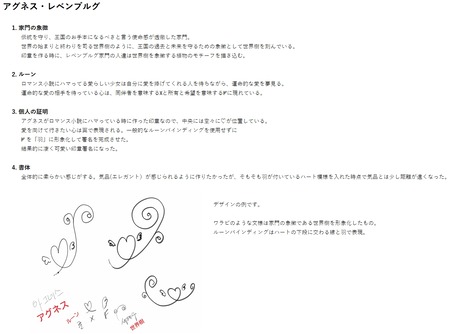 アグネス・レベンブルグ
1. 家門の象徴
伝統を守り、王国のお手本になるべきと言う使命感が透徹した家門。
世界の始まりと終わりを司る世界樹のように、王国の過去と未来を守るための象徴として世界樹を刻んでいる。
印章を作る時に、レベンブルグ家門の人達は世界樹を象徴する植物のモチーフを描き込む。
2. ルーン
ロマンス小説にハマってる愛らしい少女は自分に愛を捧げてくれる人を待ちながら、運命的な愛を夢見る。
運命的な愛の相手を待っている心は、同伴者を意味するXと所有と希望を意味するFに現れている。
3. 個人の証明
アグネスがロマンス小説にハマっている時に作った印章なので、中央には堂々に♡が位置している。
愛を向けて行きたい心は翼で表現される。一般的なルーンバインディングを使用せずに
Fを「羽」に形象化して署名を完成させた。
結果的に凄く可愛い印章署名になった。
4. 書体
全体的に柔らかい感じがする。気品(エレガント)が感じられるように作りたかったが、そもそも羽が付いているハート模様を入れた時点で気品とは少し距離が遠くなった。
デザインの例です。
ワラビのような文様は家門の象徴である世界樹を形象化したもの。
ルーンバインディングはハートの下段に交わる線と羽で表現。
아그네스
アグネス
ルーン
X F
세계수
世界樹